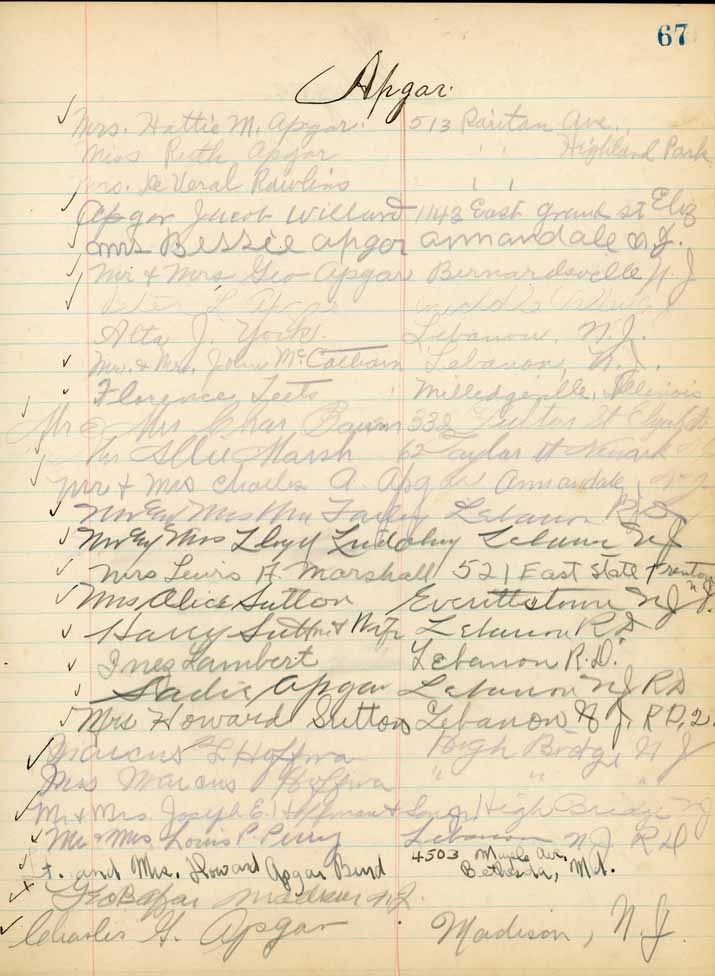 67
Apgar.
Mrs. Hattie M. Apgar. 513 Raritan Ave.,
Miss Ruth Apgar " " Highland Park
Mrs. De Veral Rawlins " "
Apgar Jacob Willard 1143 East Grand st Eliz
Bessie apgar annandale N.J.
Mr & Mrs Geo Apgar Bernardsville N.J
Alta J. York. Lebanon, N.J.
Mr. & Mrs. John McCatharn Lebanon, N.J.
Florence Teets Milledgeville, Illinois
Mr & Mrs Chas. 332 Fulton St
Allie Marsh 62 Taylor St Newark
Mr & Mrs Charles A. Apgar Annandale, N.J.
Mr & Mrs Wm Farley Lebanon R.D.
Mr & Mrs Lloyd Lebanon NJ
Mrs Lewis H. Marshall 521 East State Trenton N.J.
Mrs Alice Sutton Everittstown N.J.
Harry Sutton & Wife Lebanon R D
Inez Lambert Lebanon R.D.
Sadie Apgar Lebanon N J R D
Mrs Howard Sutton Lebanon N J. R D, 2.
Marcus L Hoffman High Bridge N J
Mrs Marcus Hoffman " " "
Mr & Mrs. Joseph E. Hoffman & High Bridge NJ
Mr & Mrs. Louis P. Perry Lebanon N J R D
Lt. and Mrs. Howard Apgar Bund 4503 Maple Ave.
Bethesda, Md.
Geo B Apgar Madison N.J.
Charles G. Apgar Madison, N.J.